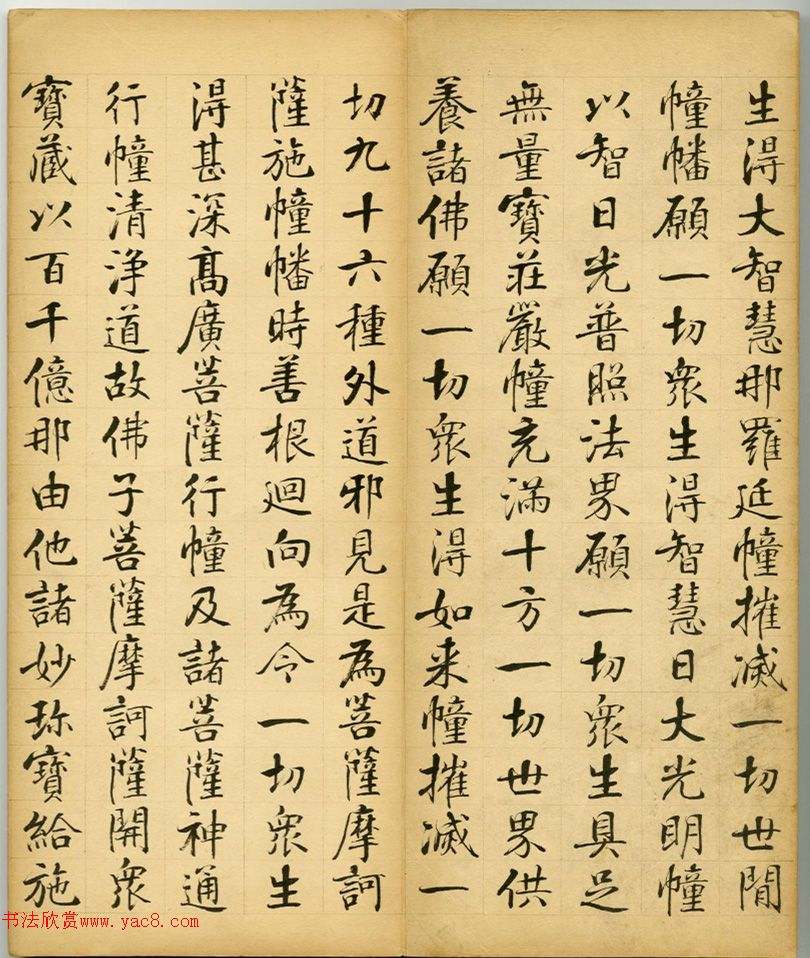 生得大智慧那羅延幢摧滅一切世間
幢幡願一切眾生得智慧日大光明幢
以智日光普照法界願一切眾生具足
無量寶莊嚴幢充滿十方一切世界供
養諸佛願一切眾生得如来幢摧滅一
切九十六種外道邪見是為菩薩摩訶
薩施幢幡時善根迴向為令一切眾生
得甚深高廣菩薩行幢及諸菩薩神通
行幢清淨道故佛子菩薩摩訶薩開眾
寶藏以百千億那由他諸妙珎寶給施
书法欣赏www.yac8.com